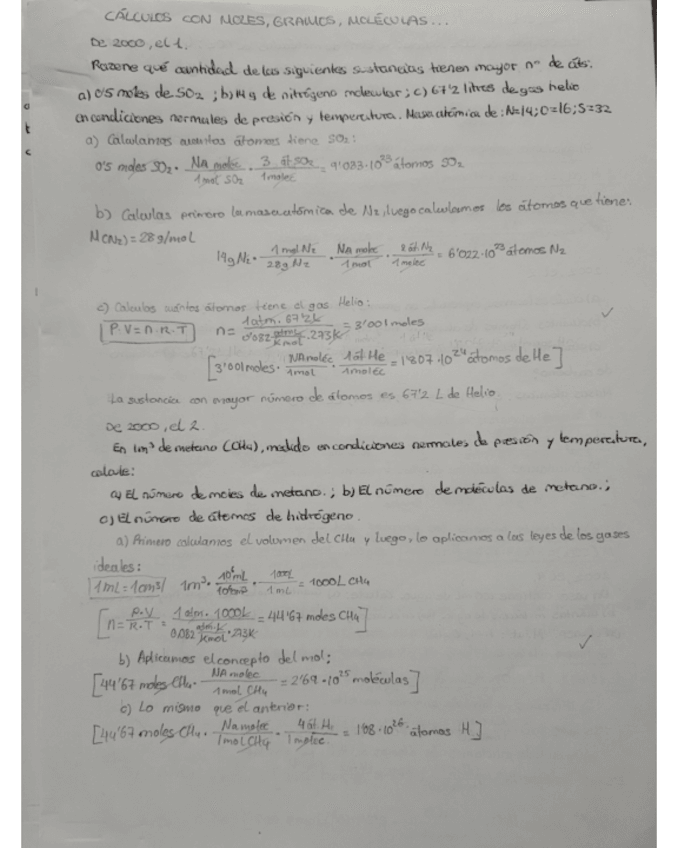 CÁLCULOS CON MOLES, GRAMOS, MOLÉCULAS...
De 2000, el 1.
Razone qué cantidad de las siguientes sustancias tienen mayor nº de áts:
a) 0'5 moles de SO₂ ; b) 14g de nitrógeno molecular ; c) 67'2 litros de gas helio
en condiciones normales de presión y temperatura. Masa atómica de: N=14; O=16; S=32
a) Calculamos cuántos átomos tiene SO₂:
0'5 moles SO₂ · NA moléc / 1 mol SO₂ · 3 át SO₂ / 1 molec = 9'033·10²³ átomos SO₂
b) Calculas primero la masa atómica de N₂, luego calculamos los átomos que tiene:
M(N₂) = 28 g/mol
14g N₂ · 1 mol N₂ / 28g N₂ · NA molec / 1 mol · 2 át. N₂ / 1 molec = 6'022·10²³ átomos N₂
c) Calculas cuántos átomos tiene el gas Helio:
P·V=n·R·T n= 1 atm · 67'2 L / 0'082 atm·L / K·mol · 273K = 3'001 moles
[3'001 moles · NA moléc / 1 mol · 1 át He / 1 moléc = 1'807·10²⁴ átomos de He]
La sustancia con mayor número de átomos es 67'2 L de Helio.
De 2000, el 2.
En 1m³ de metano (CH₄), medido en condiciones normales de presión y temperatura,
calcule:
a) El número de moles de metano.; b) El número de moléculas de metano.;
c) El número de átomos de hidrógeno.
a) Primero calculamos el volumen del CH₄ y luego, lo aplicamos a las leyes de los gases
ideales:
1 mL = 1 cm³ 1m³ · 10⁶ mL = 1000L CH₄
[n= P·V / R·T = 1 atm · 1000L / 0,082 atm·L / K·mol · 273K = 44'67 moles CH₄]
b) Aplicamos el concepto del mol;
[44'67 moles CH₄ · NA molec / 1 mol CH₄ = 2'69·10²⁵ moléculas]
c) Lo mismo que el anterior:
[44'67 moles CH₄ · Na molec / 1 mol CH₄ · 4 át. H / 1 molec = 1'08·10²⁶ átomos H]